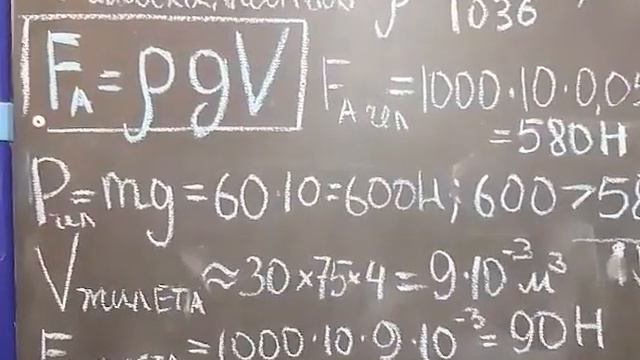 ρ 1036
F_A = ρgV F_A чел = 1000·10·0,0
= 580Н
P_чел = mg = 60·10 = 600Н; 600 > 58
V_жилета ≈ 30×75×4 = 9·10⁻³ м³
F = 1000·10·9·10⁻³ = 90Н